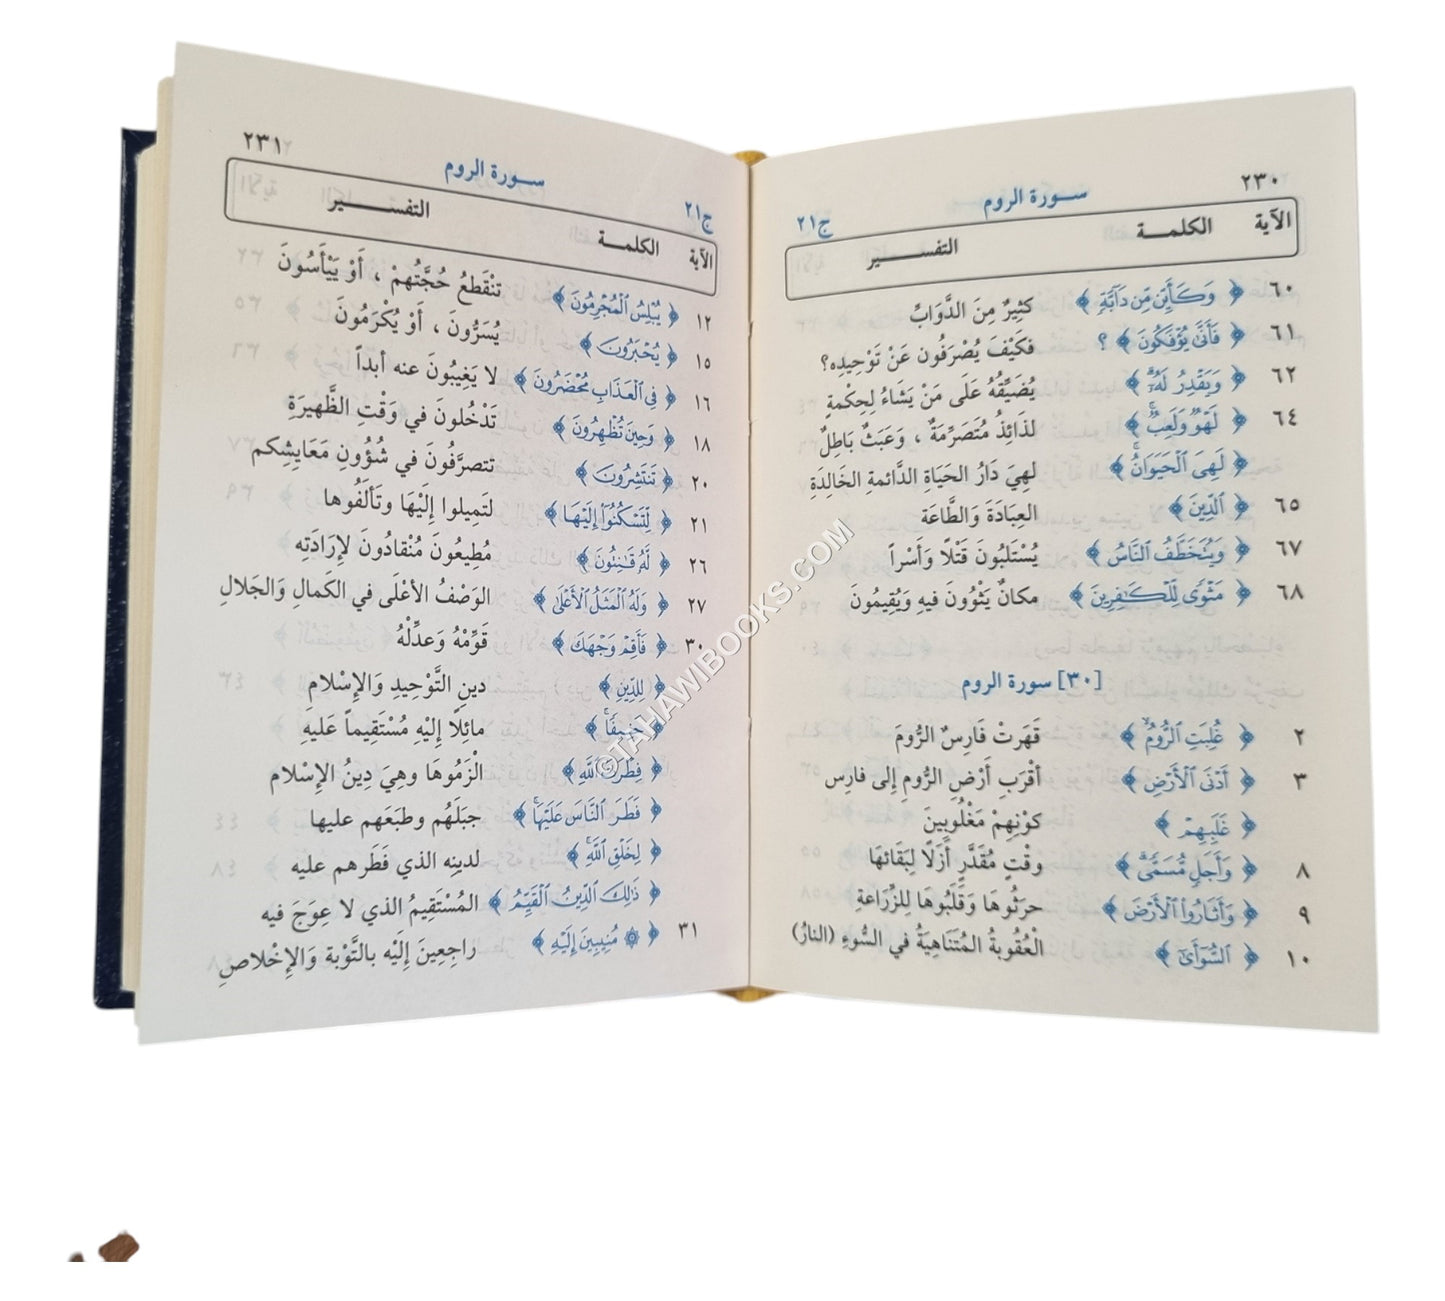 ٢٣٠
سورة الروم
ج٢١
الآية الكلمة التفسير
٦٠ ﴿ وَكَأَيِّن مِّن دَآبَّةٍ ﴾ كثِيرٌ مِنَ الدَّوَابِّ
٦١ ﴿ فَأَنَّىٰ يُؤْفَكُونَ ﴾ ؟ فكَيْفَ يُصْرَفُون عَنْ تَوْحِيدِه؟
٦٢ ﴿ وَيَقْدِرُ لَهُۥٓ ﴾ يُضَيِّقُهُ عَلَى مَنْ يَشَاءُ لِحِكْمةٍ
٦٤ ﴿ لَهْوٌ وَلَعِبٌ ﴾ لذَائِذُ مُتَصَرِّمَةٌ ، وَعَبَثٌ بَاطِلٌ
﴿ لَهِىَ ٱلْحَيَوَانُ ﴾ لهِيَ دَارُ الحَيَاةِ الدَّائمةِ الخَالِدَةِ
٦٥ ﴿ ٱلدِّينَ ﴾ العِبَادَةَ وَالطَّاعَة
٦٧ ﴿ وَيُتَخَطَّفُ ٱلنَّاسُ ﴾ يُسْتَلَبُونَ قَتْلًا وَأَسْراً
٦٨ ﴿ مَثْوًى لِّلْكَـٰفِرِينَ ﴾ مكانٌ يَثْوُونَ فيهِ وَيُقِيمُونَ
[٣٠] سورة الروم
٢ ﴿ غُلِبَتِ ٱلرُّومُ ﴾ قَهَرَتْ فَارِسٌ الرُّومَ
٣ ﴿ أَدْنَى ٱلْأَرْضِ ﴾ أقْرَبِ أَرْضِ الرُّومِ إلى فارِس
﴿ غَلَبِهِمْ ﴾ كوْنِهِمْ مَغْلُوبِينَ
٨ ﴿ وَأَجَلٍ مُّسَمًّى ﴾ وقْتٍ مُقَدَّرٍ أَزَلًا لِبَقَائهَا
٩ ﴿ وَأَثَارُوا۟ ٱلْأَرْضَ ﴾ حرَثُوهَا وَقَلَبُوهَا لِلزِّرَاعةِ
١٠ ﴿ ٱلسُّوٓأَىٰٓ ﴾ الْعُقُوبةُ المُتَنَاهِيَةُ في السُّوءِ (النارُ)
٢٣١
سورة الروم
ج٢١
الآية الكلمة التفسير
١٢ ﴿ يُبْلِسُ ٱلْمُجْرِمُونَ ﴾ تنْقَطِعُ حُجَّتُهمْ ، أَوْ يَيْأَسُونَ
١٥ ﴿ يُحْبَرُونَ ﴾ يُسَرُّونَ ، أَوْ يُكْرَمُونَ
١٦ ﴿ فِى ٱلْعَذَابِ مُحْضَرُونَ ﴾ لا يَغِيبُونَ عنه أبداً
١٨ ﴿ وَحِينَ تُظْهِرُونَ ﴾ تَدْخُلونَ في وَقْتِ الظَّهِيرَةِ
٢٠ ﴿ تَنتَشِرُونَ ﴾ تتصرَّفونَ في شُؤُونِ مَعَايشِكم
٢١ ﴿ لِّتَسْكُنُوٓا۟ إِلَيْهَا ﴾ لتَمِيلوا إِلَيْهَا وَتَألَفُوها
٢٦ ﴿ لَّهُۥ قَـٰنِتُونَ ﴾ مُطِيعُونَ مُنْقادُونَ لإِرَادَتِه
٢٧ ﴿ وَلَهُ ٱلْمَثَلُ ٱلْأَعْلَىٰ ﴾ الوَصْفُ الأعْلَى في الكَمالِ وَالجَلال
٣٠ ﴿ فَأَقِمْ وَجْهَكَ ﴾ قَوِّمْهُ وَعدِّلْهُ
﴿ لِلدِّينِ ﴾ دينِ التَّوْحِيدِ وَالإِسْلامِ
﴿ حَنِيفًا ﴾ مائِلًا إِلَيْهِ مُسْتَقِيماً عَليهِ
﴿ فِطْرَتَ ٱللَّهِ ﴾ الْزَمُوهَا وهِيَ دِينُ الإِسْلام
﴿ فَطَرَ ٱلنَّاسَ عَلَيْهَا ﴾ جبَلَهُم وطبَعَهم عليها
﴿ لِخَلْقِ ٱللَّهِ ﴾ لدينِه الذي فَطَرهم عليه
﴿ ذَٰلِكَ ٱلدِّينُ ٱلْقَيِّمُ ﴾ المُسْتَقِيمُ الذي لا عِوَجَ فيه
٣١ ﴿ ۞ مُنِيبِينَ إِلَيْهِ ﴾ راجِعِينَ إِلَيْه بالتَّوْبة وَالإِخْلاصِ
©TAHAWIBOOKS.COM